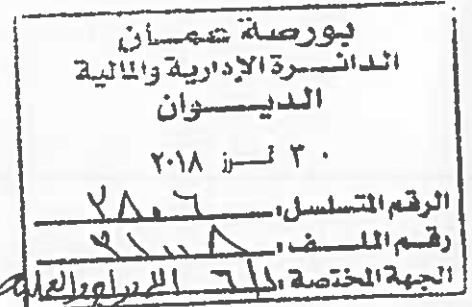 بورصة عمان
الدائرة الإدارية والمالية
الديوان
٣٠ تموز ٢٠١٨
الرقم المتسلسل: ٢٨٠٦
رقم الملف: ٣١٠٠٨
الجهة المختصة: